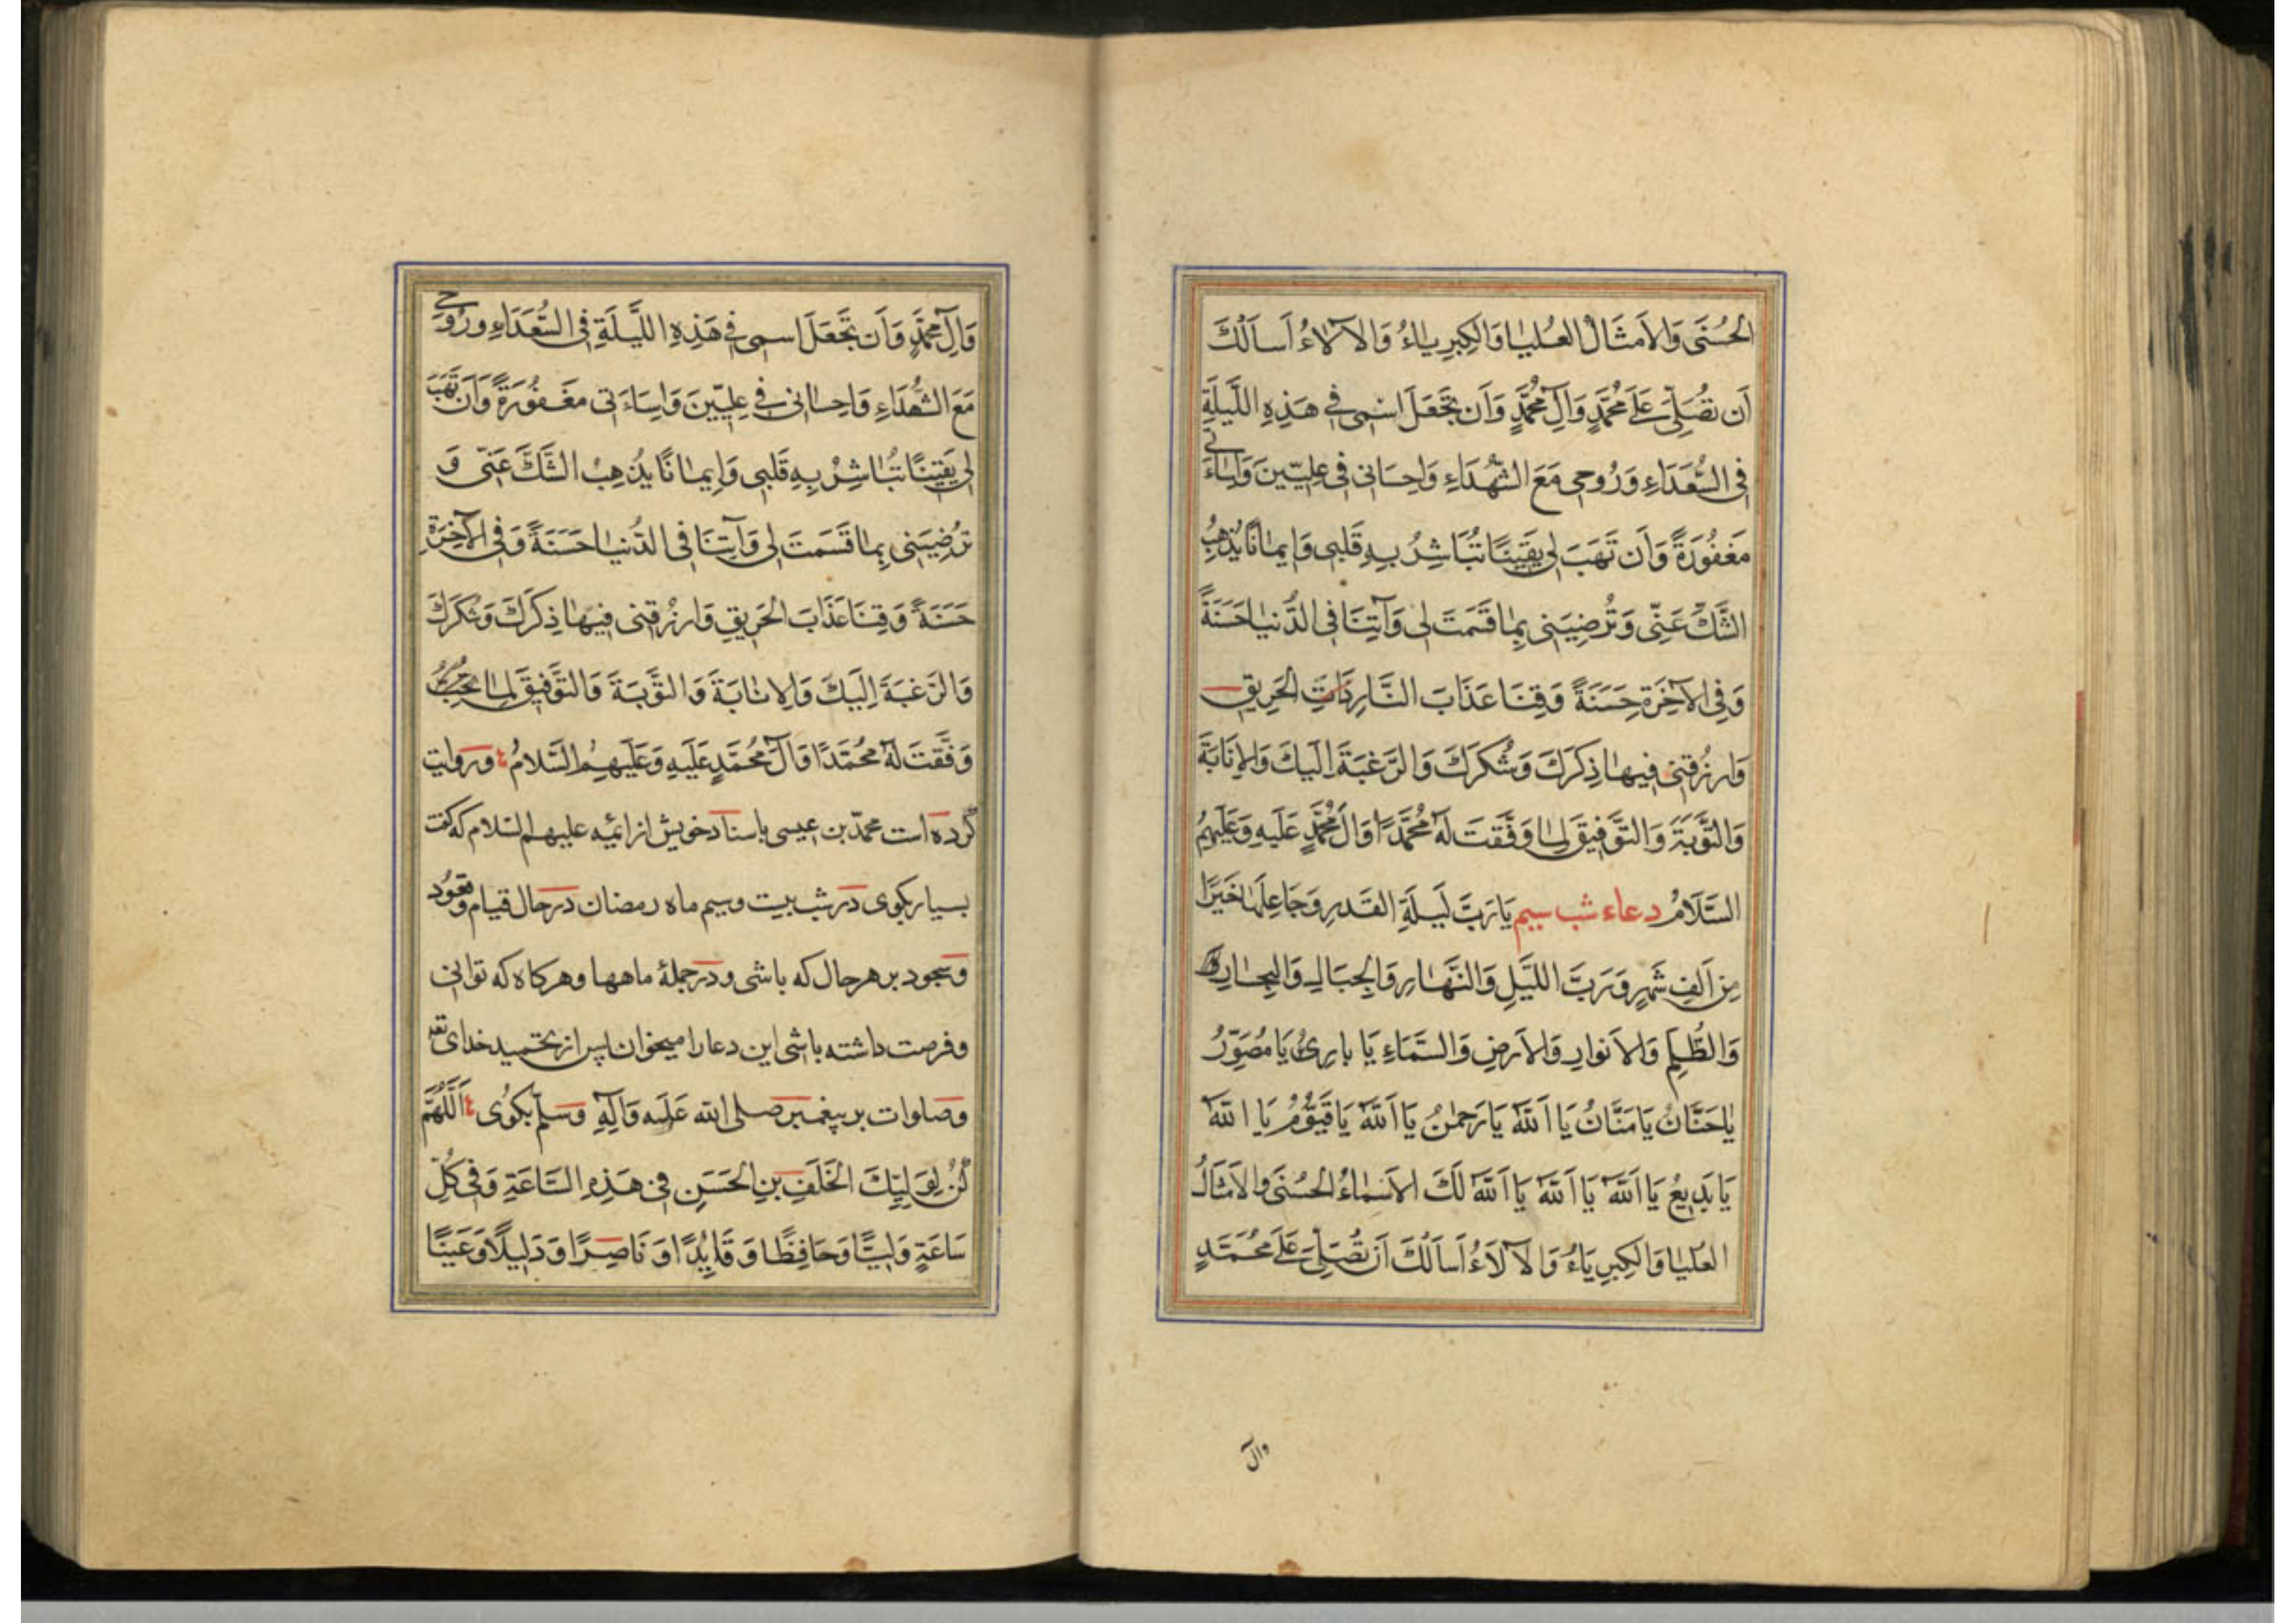 الْحُسْنَى وَالْأَمْثَالُ الْعُلْيَا وَالْكِبْرِيَاءُ وَالْآلَاءُ أَسْأَلُكَ
أَنْ تُصَلِّيَ عَلَى مُحَمَّدٍ وَآلِ مُحَمَّدٍ وَأَنْ تَجْعَلَ اسْمِي فِي هَذِهِ اللَّيْلَةِ
فِي السُّعَدَاءِ وَرُوحِي مَعَ الشُّهَدَاءِ وَإِحْسَانِي فِي عِلِّيِّينَ وَإِسَاءَتِي
مَغْفُورَةً وَأَنْ تَهَبَ لِي يَقِينًا تُبَاشِرُ بِهِ قَلْبِي وَإِيمَانًا يُذْهِبُ
الشَّكَّ عَنِّي وَتُرْضِيَنِي بِمَا قَسَمْتَ لِي وَآتِنَا فِي الدُّنْيَا حَسَنَةً
وَفِي الْآخِرَةِ حَسَنَةً وَقِنَا عَذَابَ النَّارِ ذَاتِ الْحَرِيقِ
وَارْزُقْنِي فِيهَا ذِكْرَكَ وَشُكْرَكَ وَالرَّغْبَةَ إِلَيْكَ وَالْإِنَابَةَ
وَالتَّوْبَةَ وَالتَّوْفِيقَ لِمَا وَفَّقْتَ لَهُ مُحَمَّدًا وَآلَ مُحَمَّدٍ عَلَيْهِ وَعَلَيْهِمُ
السَّلَامُ دعاء شب سیم يَا رَبَّ لَيْلَةِ الْقَدْرِ وَجَاعِلَهَا خَيْرًا
مِنْ أَلْفِ شَهْرٍ وَرَبَّ اللَّيْلِ وَالنَّهَارِ وَالْجِبَالِ وَالْبِحَارِ
وَالظُّلَمِ وَالْأَنْوَارِ وَالْأَرْضِ وَالسَّمَاءِ يَا بَارِئُ يَا مُصَوِّرُ
يَا حَنَّانُ يَا مَنَّانُ يَا اَللّٰهُ يَا رَحْمٰنُ يَا اَللّٰهُ يَا قَيُّومُ يَا اللّٰهُ
يَا بَدِيعُ يَا اَللّٰهُ يَا اَللّٰهُ يَا اَللّٰهُ لَكَ الْأَسْمَاءُ الْحُسْنَى وَالْأَمْثَالُ
الْعُلْيَا وَالْكِبْرِيَاءُ وَالْآلَاءُ أَسْأَلُكَ أَنْ تُصَلِّيَ عَلَى مُحَمَّدٍ
وآل
وَآلِ مُحَمَّدٍ وَأَنْ تَجْعَلَ اسْمِي فِي هَذِهِ اللَّيْلَةِ فِي السُّعَدَاءِ وَرُوحِي
مَعَ الشُّهَدَاءِ وَإِحْسَانِي فِي عِلِّيِّينَ وَإِسَاءَتِي مَغْفُورَةً وَأَنْ تَهَبَ
لِي يَقِينًا تُبَاشِرُ بِهِ قَلْبِي وَإِيمَانًا يُذْهِبُ الشَّكَّ عَنِّي وَ
تُرْضِيَنِي بِمَا قَسَمْتَ لِي وَآتِنَا فِي الدُّنْيَا حَسَنَةً وَفِي الْآخِرَةِ
حَسَنَةً وَقِنَا عَذَابَ الْحَرِيقِ وَارْزُقْنِي فِيهَا ذِكْرَكَ وَشُكْرَكَ
وَالرَّغْبَةَ إِلَيْكَ وَالْإِنَابَةَ وَالتَّوْبَةَ وَالتَّوْفِيقَ لِمَا
وَفَّقْتَ لَهُ مُحَمَّدًا وَآلَ مُحَمَّدٍ عَلَيْهِ وَعَلَيْهِمُ السَّلَامُ وروایت
کرده است محمّد بن عیسی باسناد خویش از ائمه علیهم السلام که گفت
بسیار بکوی در شب بیت وسیم ماه رمضان در حال قیام وقعود
وسجود بر هر حال که باشی ودر جملۀ ماهها وهرکاه که توانی
وفرصت داشته باشی این دعا را میخوان پس از تحمید خدای تعالی
وصلوات بر پیغمبر صلی الله عَلَیه وَآلِهِ وَسَلّم بکوی اَللّٰهُمَّ
كُنْ لِوَلِيِّكَ الْخَلَفِ بْنِ الْحَسَنِ فِي هَذِهِ السَّاعَةِ وَفِي كُلِّ
سَاعَةٍ وَلِيًّا وَحَافِظًا وَقَايِدًا وَنَاصِرًا وَدَلِيلًا وَعَيْنًا